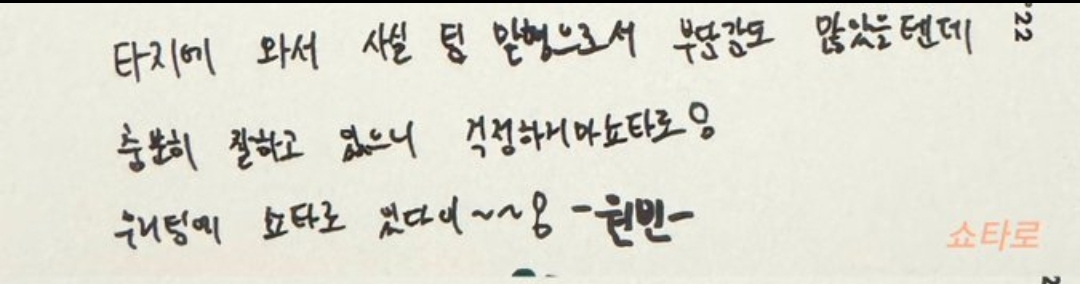 타지에 와서 사실 팀 맏형으로서 부담감도 많았을텐데
충분히 잘하고 있으니 걱정하지마 쇼타로오
우리팀에 쇼타로 있다이~~용 -원빈-
쇼타로
'22